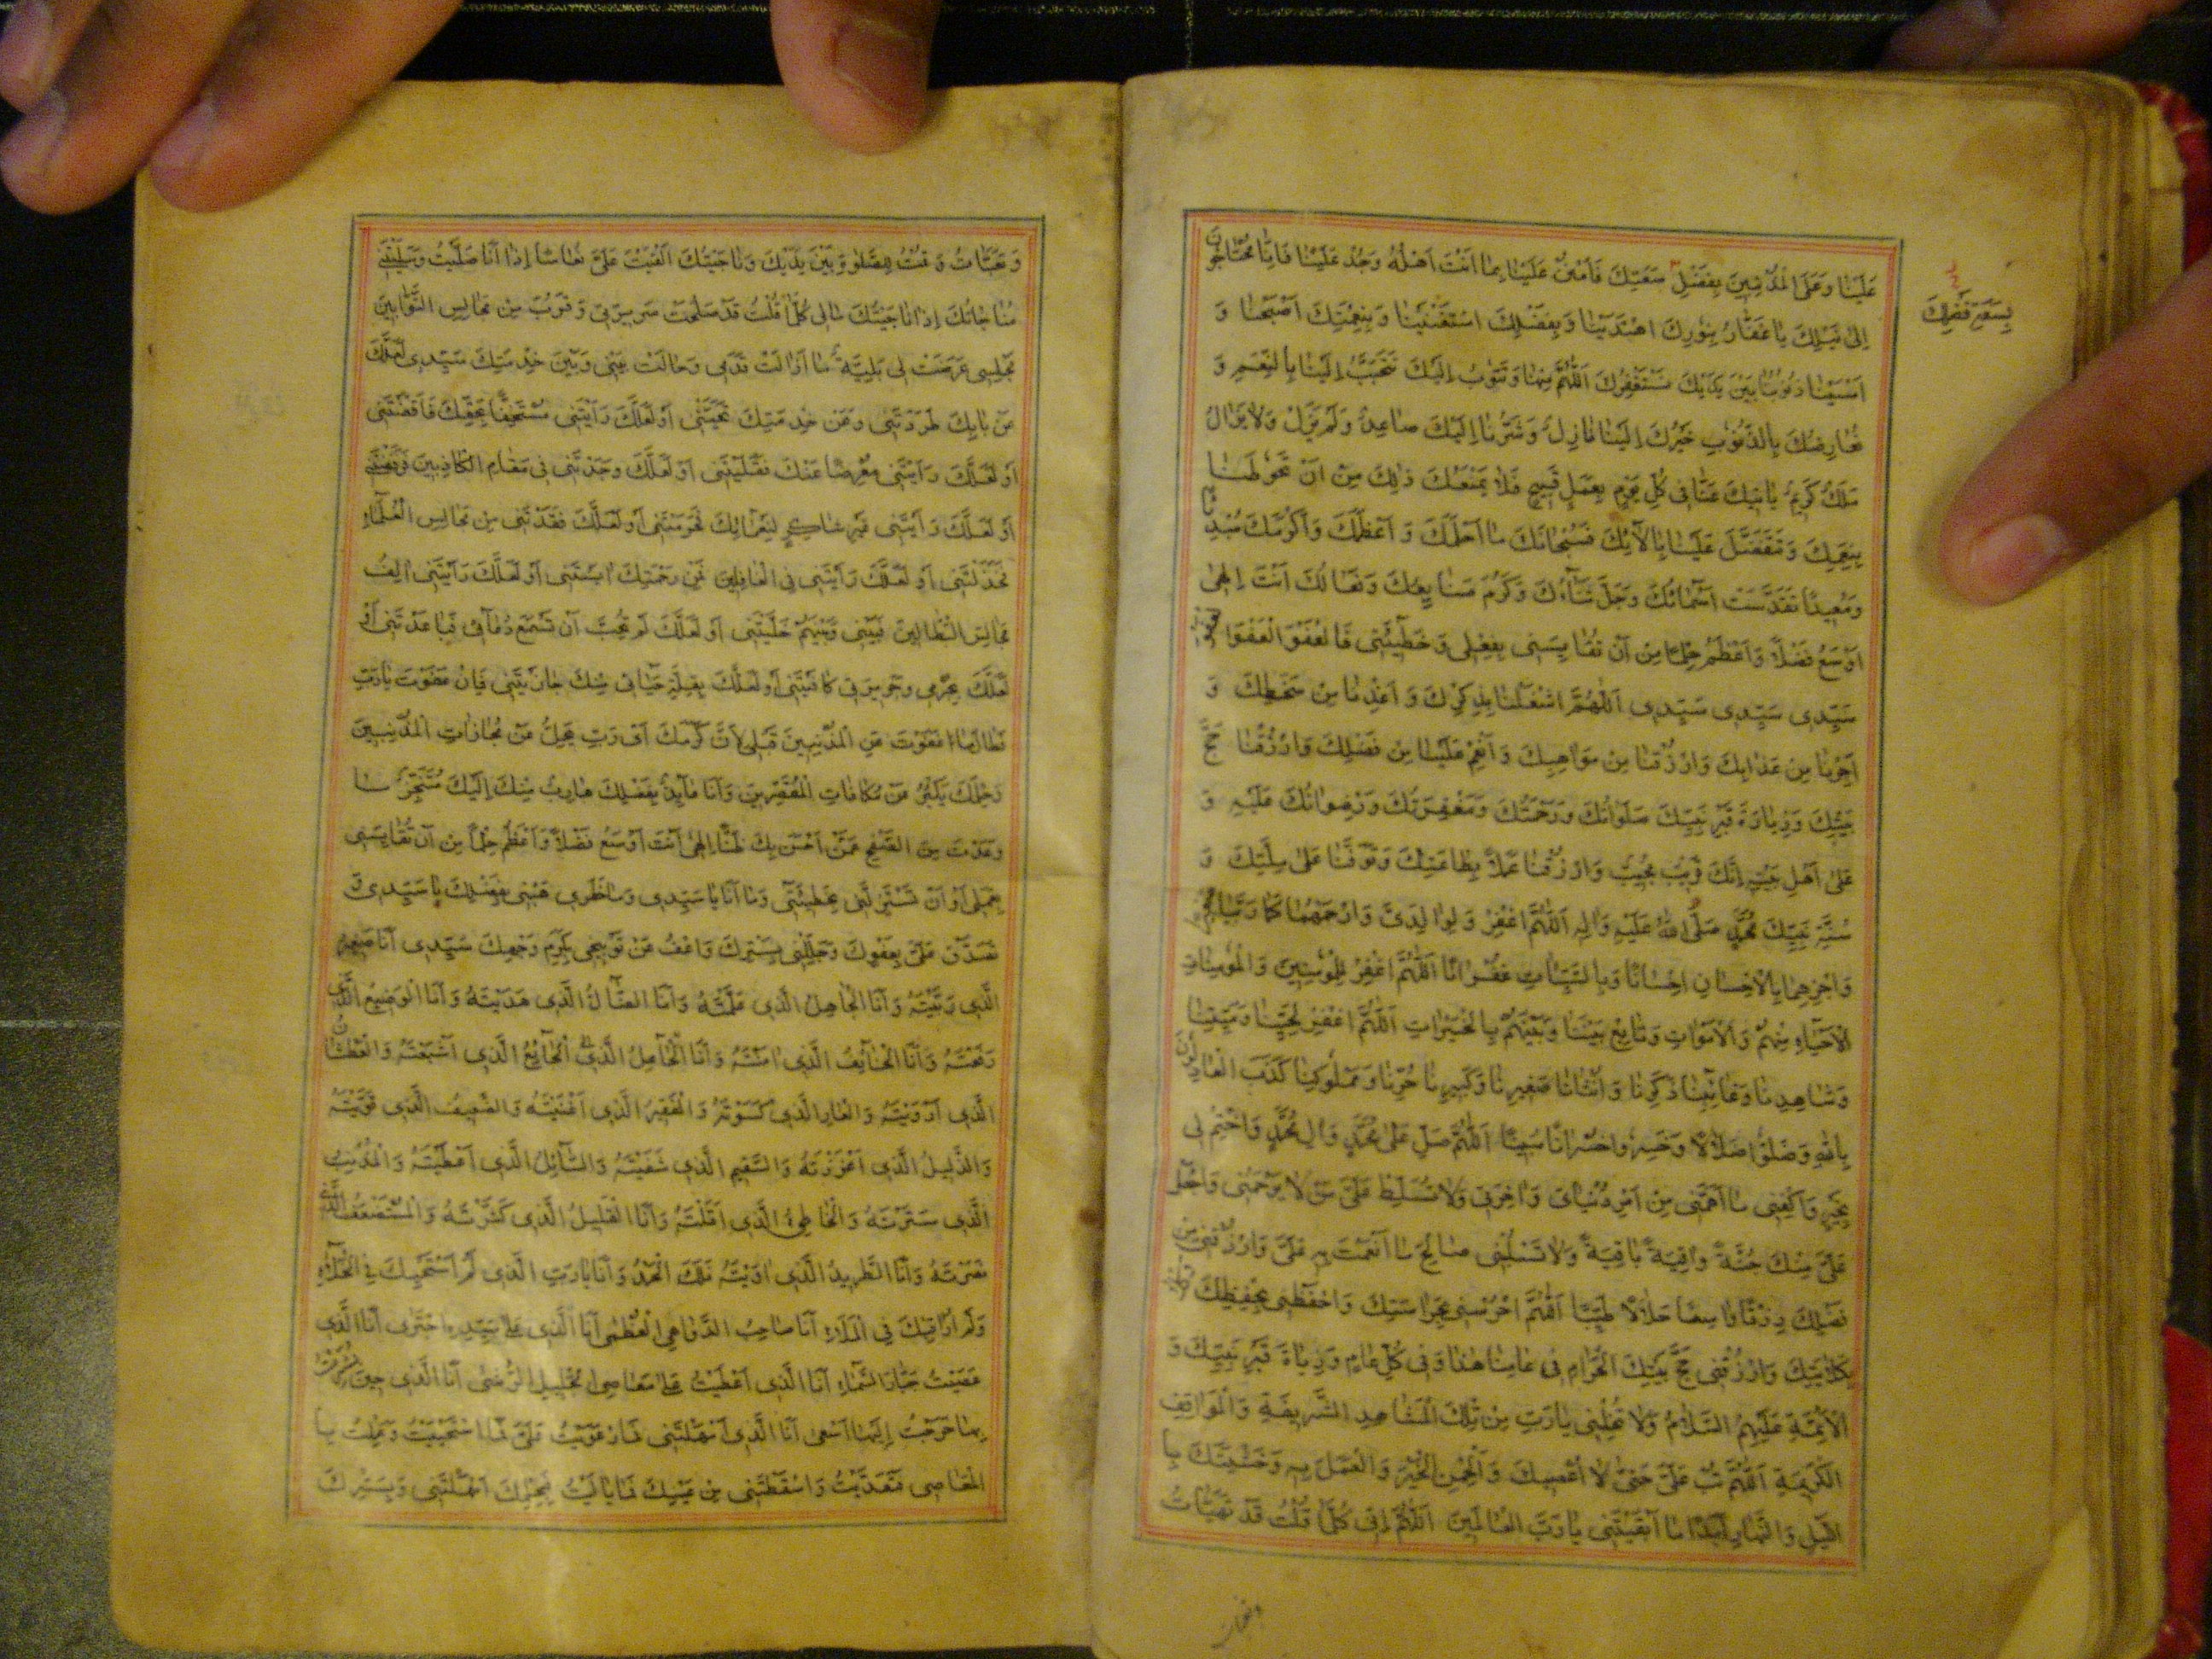 عَلَيْنَا وَعَلَى الْمُذْنِبِينَ بِفَضْلِ سَعَتِكَ فَامْنُنْ عَلَيْنَا بِمَا أَنْتَ أَهْلُهُ وَجُدْ عَلَيْنَا فَإِنَّا مُحْتَاجُونَ
إِلَى نَيْلِكَ يَا غَفَّارُ بِنُورِكَ اهْتَدَيْنَا وَبِفَضْلِكَ اسْتَغْنَيْنَا وَبِنِعْمَتِكَ أَصْبَحْنَا وَ
أَمْسَيْنَا ذُنُوبُنَا بَيْنَ يَدَيْكَ نَسْتَغْفِرُكَ اَللّٰهُمَّ مِنْهَا وَنَتُوبُ إِلَيْكَ تَتَحَبَّبُ إِلَيْنَا بِالنِّعَمِ وَ
نُعَارِضُكَ بِالذُّنُوبِ خَيْرُكَ إِلَيْنَا نَازِلٌ وَشَرُّنَا إِلَيْكَ صَاعِدٌ وَلَمْ يَزَلْ وَلَا يَزَالُ
مَلَكٌ كَرِيمٌ يَأْتِيكَ عَنَّا فِي كُلِّ يَوْمٍ بِعَمَلٍ قَبِيحٍ فَلَا يَمْنَعُكَ ذٰلِكَ مِنْ أَنْ تَحُوطَنَا
بِنِعَمِكَ وَتَتَفَضَّلَ عَلَيْنَا بِآلَائِكَ فَسُبْحَانَكَ مَا أَحْلَمَكَ وَأَعْظَمَكَ وَأَكْرَمَكَ مُبْدِئًا
وَمُعِيدًا تَقَدَّسَتْ أَسْمَائُكَ وَجَلَّ ثَنَاؤُكَ وَكَرُمَ صَنَايِعُكَ وَفِعَالُكَ أَنْتَ إِلٰهِي
أَوْسَعُ فَضْلًا وَأَعْظَمُ حِلْمًا مِنْ أَنْ تُقَايِسَنِي بِفِعْلِي وَخَطِيئَتِي فَالْعَفْوَ الْعَفْوَ الْعَفْوَ
سَيِّدِي سَيِّدِي سَيِّدِي اَللّٰهُمَّ اشْغَلْنَا بِذِكْرِكَ وَأَعِذْنَا مِنْ سَخَطِكَ وَ
أَجِرْنَا مِنْ عَذَابِكَ وَارْزُقْنَا مِنْ مَوَاهِبِكَ وَأَنْعِمْ عَلَيْنَا مِنْ فَضْلِكَ وَارْزُقْنَا حَجَّ
بَيْتِكَ وَزِيَارَةَ قَبْرِ نَبِيِّكَ صَلَوَاتُكَ وَرَحْمَتُكَ وَمَغْفِرَتُكَ وَرِضْوَانُكَ عَلَيْهِ وَ
عَلَى أَهْلِ بَيْتِهِ إِنَّكَ قَرِيبٌ مُجِيبٌ وَارْزُقْنَا عَمَلًا بِطَاعَتِكَ وَتَوَفَّنَا عَلَى مِلَّتِكَ وَ
سُنَّةِ نَبِيِّكَ مُحَمَّدٍ صَلَّى اللهُ عَلَيْهِ وَآلِهِ اَللّٰهُمَّ اغْفِرْ لِي وَلِوَالِدَيَّ وَارْحَمْهُمَا كَمَا رَبَّيَانِي
وَاجْزِهِمَا بِالْإِحْسَانِ إِحْسَانًا وَبِالسَّيِّئَاتِ غُفْرَانًا اَللّٰهُمَّ اغْفِرْ لِلْمُؤْمِنِينَ وَالْمُؤْمِنَاتِ
الْأَحْيَاءِ مِنْهُمْ وَالْأَمْوَاتِ وَتَابِعْ بَيْنَنَا وَبَيْنَهُمْ بِالْخَيْرَاتِ اَللّٰهُمَّ اغْفِرْ لِحَيِّنَا وَمَيِّتِنَا
وَشَاهِدِنَا وَغَائِبِنَا ذَكَرِنَا وَأُنْثَانَا صَغِيرِنَا وَكَبِيرِنَا حُرِّنَا وَمَمْلُوكِنَا كَذَبَ الْعَادِلُونَ
بِاللهِ وَضَلُّوا ضَلَالًا وَخَسِرُوا خُسْرَانًا مُبِينًا اَللّٰهُمَّ صَلِّ عَلَى مُحَمَّدٍ وَآلِ مُحَمَّدٍ وَاخْتِمْ لِي
بِخَيْرٍ وَاكْفِنِي مَا أَهَمَّنِي مِنْ أَمْرِ دُنْيَايَ وَآخِرَتِي وَلَا تُسَلِّطْ عَلَيَّ مَنْ لَا يَرْحَمُنِي وَاجْعَلْ
عَلَيَّ مِنْكَ جُنَّةً وَاقِيَةً بَاقِيَةً وَلَا تَسْلُبْنِي صَالِحَ مَا أَنْعَمْتَ بِهِ عَلَيَّ وَارْزُقْنِي مِنْ
فَضْلِكَ رِزْقًا وَاسِعًا حَلَالًا طَيِّبًا اَللّٰهُمَّ احْرُسْنِي بِحَرَاسَتِكَ وَاحْفَظْنِي بِحِفْظِكَ
بِكِلَائَتِكَ وَارْزُقْنِي حَجَّ بَيْتِكَ الْحَرَامِ فِي عَامِنَا هٰذَا وَفِي كُلِّ عَامٍ وَزِيَارَةَ قَبْرِ نَبِيِّكَ وَ
الْأَئِمَّةِ عَلَيْهِمُ السَّلَامُ وَلَا تُخْلِنِي يَا رَبِّ مِنْ تِلْكَ الْمَشَاهِدِ الشَّرِيفَةِ وَالْمَوَاقِفِ
الْكَرِيمَةِ اَللّٰهُمَّ تُبْ عَلَيَّ حَتَّى لَا أَعْصِيَكَ وَأَلْهِمْنِي الْخَيْرَ وَالْعَمَلَ بِهِ وَخَشْيَتَكَ بِا
اللَّيْلِ وَالنَّهَارِ أَبَدًا مَا أَبْقَيْتَنِي يَا رَبَّ الْعَالَمِينَ اَللّٰهُمَّ إِنِّي كُلَّمَا قُلْتُ قَدْ تَهَيَّأْتُ
وَتَعَبَّأْتُ وَقُمْتُ لِلصَّلٰوةِ بَيْنَ يَدَيْكَ وَنَاجَيْتُكَ أَلْقَيْتَ عَلَيَّ نُعَاسًا إِذَا أَنَا صَلَّيْتُ وَسَلَبْتَنِي
مُنَاجَاتَكَ إِذَا أَنَا نَاجَيْتُكَ مَا لِي كُلَّمَا قُلْتُ قَدْ صَلُحَتْ سَرِيرَتِي وَقَرُبَ مِنْ مَجَالِسِ التَّوَّابِينَ
مَجْلِسِي عَرَضَتْ لِي بَلِيَّةٌ مَا أَزَالَتْ قَدَمِي وَحَالَتْ بَيْنِي وَبَيْنَ خِدْمَتِكَ سَيِّدِي لَعَلَّكَ
عَنْ بَابِكَ طَرَدْتَنِي وَعَنْ خِدْمَتِكَ نَحَّيْتَنِي أَوْ لَعَلَّكَ رَأَيْتَنِي مُسْتَخِفًّا بِحَقِّكَ فَأَقْصَيْتَنِي
أَوْ لَعَلَّكَ رَأَيْتَنِي مُعْرِضًا عَنْكَ فَقَلَيْتَنِي أَوْ لَعَلَّكَ وَجَدْتَنِي فِي مَقَامِ الْكَاذِبِينَ فَرَفَضْتَنِي
أَوْ لَعَلَّكَ رَأَيْتَنِي غَيْرَ شَاكِرٍ لِنَعْمَائِكَ فَحَرَمْتَنِي أَوْ لَعَلَّكَ فَقَدْتَنِي مِنْ مَجَالِسِ الْعُلَمَاءِ
فَخَذَلْتَنِي أَوْ لَعَلَّكَ رَأَيْتَنِي فِي الْغَافِلِينَ فَمِنْ رَحْمَتِكَ آيَسْتَنِي أَوْ لَعَلَّكَ رَأَيْتَنِي آلِفُ
مَجَالِسَ الْبَطَّالِينَ فَبَيْنِي وَبَيْنَهُمْ خَلَّيْتَنِي أَوْ لَعَلَّكَ لَمْ تُحِبَّ أَنْ تَسْمَعَ دُعَائِي فَبَاعَدْتَنِي أَوْ
لَعَلَّكَ بِجُرْمِي وَجَرِيرَتِي كَافَيْتَنِي أَوْ لَعَلَّكَ بِقِلَّةِ حَيَائِي مِنْكَ جَازَيْتَنِي فَإِنْ عَفَوْتَ يَا رَبِّ
فَطَالَمَا عَفَوْتَ عَنِ الْمُذْنِبِينَ قَبْلِي لِأَنَّ كَرَمَكَ أَيْ رَبِّ يَجِلُّ عَنْ مُجَازَاتِ الْمُذْنِبِينَ
وَحِلْمَكَ يَكْبُرُ عَنْ مُكَافَاتِ الْمُقَصِّرِينَ وَأَنَا عَائِذٌ بِفَضْلِكَ هَارِبٌ مِنْكَ إِلَيْكَ مُتَنَجِّزٌ مَا
وَعَدْتَ مِنَ الصَّفْحِ عَمَّنْ أَحْسَنَ بِكَ ظَنًّا إِلٰهِي أَنْتَ أَوْسَعُ فَضْلًا وَأَعْظَمُ حِلْمًا مِنْ أَنْ تُقَايِسَنِي
بِعَمَلِي أَوْ أَنْ تَسْتَزِلَّنِي بِخَطِيئَتِي وَمَا أَنَا يَا سَيِّدِي وَمَا خَطَرِي هَبْنِي بِفَضْلِكَ يَا سَيِّدِي وَ
تَصَدَّقْ عَلَيَّ بِعَفْوِكَ وَجَلِّلْنِي بِسِتْرِكَ وَاعْفُ عَنْ تَوْبِيخِي بِكَرَمِ وَجْهِكَ سَيِّدِي أَنَا الصَّغِيرُ
الَّذِي رَبَّيْتَهُ وَأَنَا الْجَاهِلُ الَّذِي عَلَّمْتَهُ وَأَنَا الضَّالُّ الَّذِي هَدَيْتَهُ وَأَنَا الْوَضِيعُ الَّذِي
رَفَعْتَهُ وَأَنَا الْخَائِفُ الَّذِي آمَنْتَهُ وَأَنَا الْحَامِلُ الَّذِي الْجَائِعُ الَّذِي أَشْبَعْتَهُ وَالْعَطْشَانُ
الَّذِي أَرْوَيْتَهُ وَالْعَارِ الَّذِي كَسَوْتَهُ وَالْفَقِيرُ الَّذِي أَغْنَيْتَهُ وَالضَّعِيفُ الَّذِي قَوَّيْتَهُ
وَالذَّلِيلُ الَّذِي أَعْزَزْتَهُ وَالسَّقِيمُ الَّذِي شَفَيْتَهُ وَالسَّائِلُ الَّذِي أَعْطَيْتَهُ وَالْمُذْنِبُ
الَّذِي سَتَرْتَهُ وَالْخَاطِئُ الَّذِي أَقَلْتَهُ وَأَنَا الْقَلِيلُ الَّذِي كَثَّرْتَهُ وَالْمُسْتَضْعَفُ الَّذِي
نَصَرْتَهُ وَأَنَا الطَّرِيدُ الَّذِي آوَيْتَهُ فَلَكَ الْحَمْدُ وَأَنَا يَا رَبِّ الَّذِي لَمْ أَسْتَحْيِكَ فِي الْخَلَاءِ
وَلَمْ أُرَاقِبْكَ فِي الْمَلَاءِ أَنَا صَاحِبُ الدَّوَاهِي الْعُظْمَى أَنَا الَّذِي عَلَى سَيِّدِهِ اجْتَرَى أَنَا الَّذِي
عَصَيْتُ جَبَّارَ السَّمَاءِ أَنَا الَّذِي أَعْطَيْتُ عَلَى مَعَاصِي الْجَلِيلِ الرُّشَى أَنَا الَّذِي حِينَ بُشِّرْتُ
بِهَا خَرَجْتُ إِلَيْهَا أَسْعَى أَنَا الَّذِي أَمْهَلْتَنِي فَمَا ارْعَوَيْتُ وَسَتَرْتَ عَلَيَّ فَمَا اسْتَحْيَيْتُ وَعَمِلْتُ بِا
الْمَعَاصِي فَتَعَدَّيْتُ وَأَسْقَطْتَنِي مِنْ عَيْنِكَ فَمَا بَالَيْتُ فَبِحِلْمِكَ أَمْهَلْتَنِي وَبِسِتْرِكَ